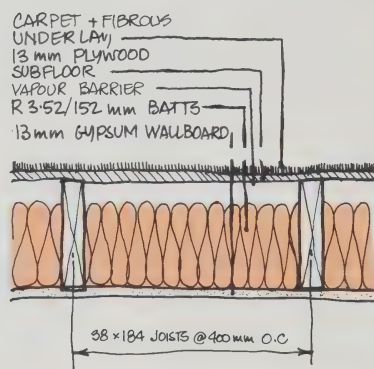 CARPET + FIBROUS
UNDERLAY
13 mm PLYWOOD
SUBFLOOR
VAPOUR BARRIER
R 3.52/152 mm BATTS
13mm GYPSUM WALLBOARD
38 × 184 JOISTS @ 400 mm O.C